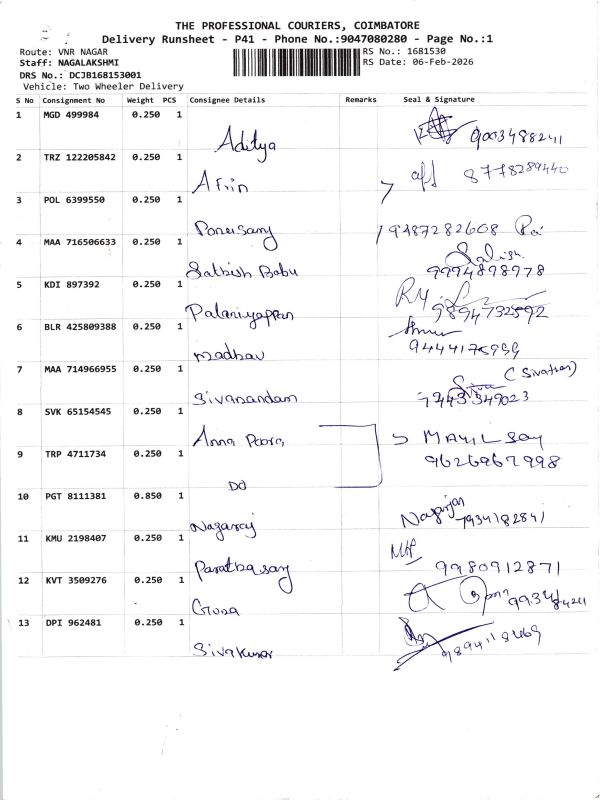 THE PROFESSIONAL COURIERS, COIMBATORE
Delivery Runsheet - P41 - Phone No.:9047080280 - Page No.:1
Route: VNR NAGAR
RS No.: 1681530
Staff: NAGALAKSHMI
RS Date: 06-Feb-2026
DRS No.: DCJB168153001
Vehicle: Two Wheeler Delivery
S No Consignment No Weight PCS Consignee Details Remarks Seal & Signature
1 MGD 499984 0.250 1 Aditya 9003488241
2 TRZ 122205842 0.250 1 8778289440
3 POL 6399550 0.250 1 Ponnusamy 9487282608
4 MAA 716506633 0.250 1 Sathish Babu 9994898978
5 KDI 897392 0.250 1 Palaniyappan 9894732592
6 BLR 425809388 0.250 1 madhav
7 MAA 714966955 0.250 1 Sivanandam
8 SVK 65154545 0.250 1 Anna Poorn
9 TRP 4711734 0.250 1 DO 9626967998
10 PGT 8111381 0.850 1 Nagaraj 7934182841
11 KMU 2198407 0.250 1 9980912871
12 KVT 3509276 0.250 1 Guna
13 DPI 962481 0.250 1 Sivakumar